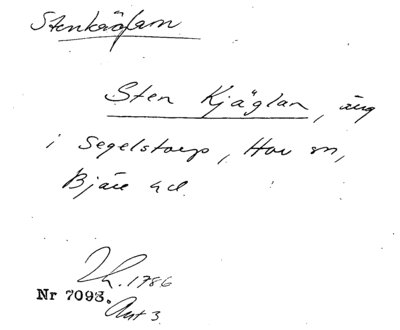 Stenkräflan
Sten Kjäglan, äng
i Segelstorp, Hov sn,
Bjäre hd
Lh. 1786
Nr 7093.
Akt 3